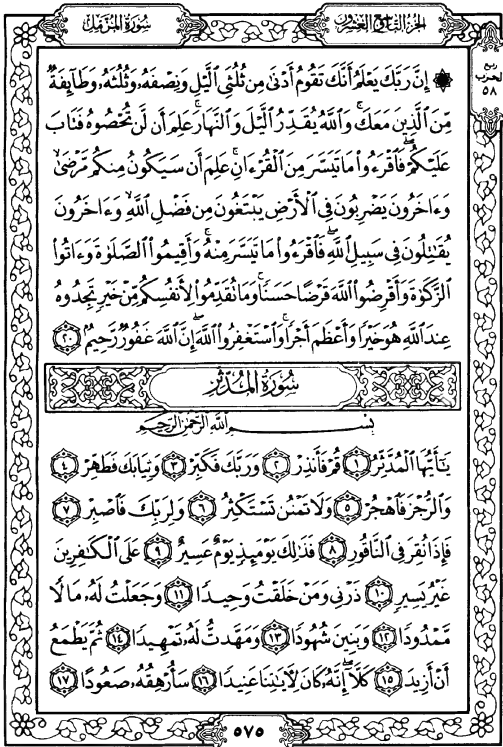 سُورَةُ المُزَّمِّل
الجزء التاسع والعشرون
ربع
الحزب
٥٨
۞ إِنَّ رَبَّكَ يَعْلَمُ أَنَّكَ تَقُومُ أَدْنَىٰ مِن ثُلُثَيِ ٱلَّيْلِ وَنِصْفَهُۥ وَثُلُثَهُۥ وَطَآئِفَةٌ
مِّنَ ٱلَّذِينَ مَعَكَ ۚ وَٱللَّهُ يُقَدِّرُ ٱلَّيْلَ وَٱلنَّهَارَ ۚ عَلِمَ أَن لَّن تُحْصُوهُ فَتَابَ
عَلَيْكُمْ ۖ فَٱقْرَءُوا۟ مَا تَيَسَّرَ مِنَ ٱلْقُرْءَانِ ۚ عَلِمَ أَن سَيَكُونُ مِنكُم مَّرْضَىٰ ۙ
وَءَاخَرُونَ يَضْرِبُونَ فِى ٱلْأَرْضِ يَبْتَغُونَ مِن فَضْلِ ٱللَّهِ ۙ وَءَاخَرُونَ
يُقَٰتِلُونَ فِى سَبِيلِ ٱللَّهِ ۖ فَٱقْرَءُوا۟ مَا تَيَسَّرَ مِنْهُ ۚ وَأَقِيمُوا۟ ٱلصَّلَوٰةَ وَءَاتُوا۟
ٱلزَّكَوٰةَ وَأَقْرِضُوا۟ ٱللَّهَ قَرْضًا حَسَنًا ۚ وَمَا تُقَدِّمُوا۟ لِأَنفُسِكُم مِّنْ خَيْرٍ تَجِدُوهُ
عِندَ ٱللَّهِ هُوَ خَيْرًا وَأَعْظَمَ أَجْرًا ۚ وَٱسْتَغْفِرُوا۟ ٱللَّهَ ۖ إِنَّ ٱللَّهَ غَفُورٌ رَّحِيمٌۢ ٢٠
سُورَةُ المُدَّثِّر
بِسْمِ ٱللَّهِ ٱلرَّحْمَٰنِ ٱلرَّحِيمِ
يَٰٓأَيُّهَا ٱلْمُدَّثِّرُ ١ قُمْ فَأَنذِرْ ٢ وَرَبَّكَ فَكَبِّرْ ٣ وَثِيَابَكَ فَطَهِّرْ ٤
وَٱلرُّجْزَ فَٱهْجُرْ ٥ وَلَا تَمْنُن تَسْتَكْثِرُ ٦ وَلِرَبِّكَ فَٱصْبِرْ ٧
فَإِذَا نُقِرَ فِى ٱلنَّاقُورِ ٨ فَذَٰلِكَ يَوْمَئِذٍ يَوْمٌ عَسِيرٌ ٩ عَلَى ٱلْكَٰفِرِينَ
غَيْرُ يَسِيرٍ ١٠ ذَرْنِى وَمَنْ خَلَقْتُ وَحِيدًا ١١ وَجَعَلْتُ لَهُۥ مَالًا
مَّمْدُودًا ١٢ وَبَنِينَ شُهُودًا ١٣ وَمَهَّدتُّ لَهُۥ تَمْهِيدًا ١٤ ثُمَّ يَطْمَعُ
أَنْ أَزِيدَ ١٥ كَلَّآ ۖ إِنَّهُۥ كَانَ لِءَايَٰتِنَا عَنِيدًا ١٦ سَأُرْهِقُهُۥ صَعُودًا ١٧
٥٧٥